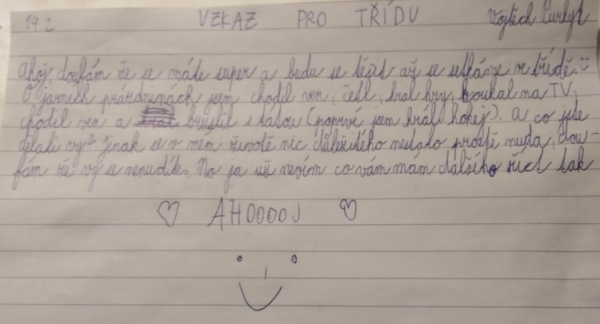 19.2 VZKAZ PRO TŘÍDU Vojtěch
Ahoj, doufám že se máte super a budu se těšit až se setkáme ve třídě.
O jarních prázdninách jsem chodil ven, četl, hrál hry, koukal na TV,
chodil ven a bruslil s kasou (poprvé jsem hrál hokej). A co jste
dělali vy? Jinak se v mém životě nic důležitého nestalo prostě nuda, dou-
fám že vy se nenudíte. No ja už nevím co vám mám dalšího říct tak
AHOOOOJ